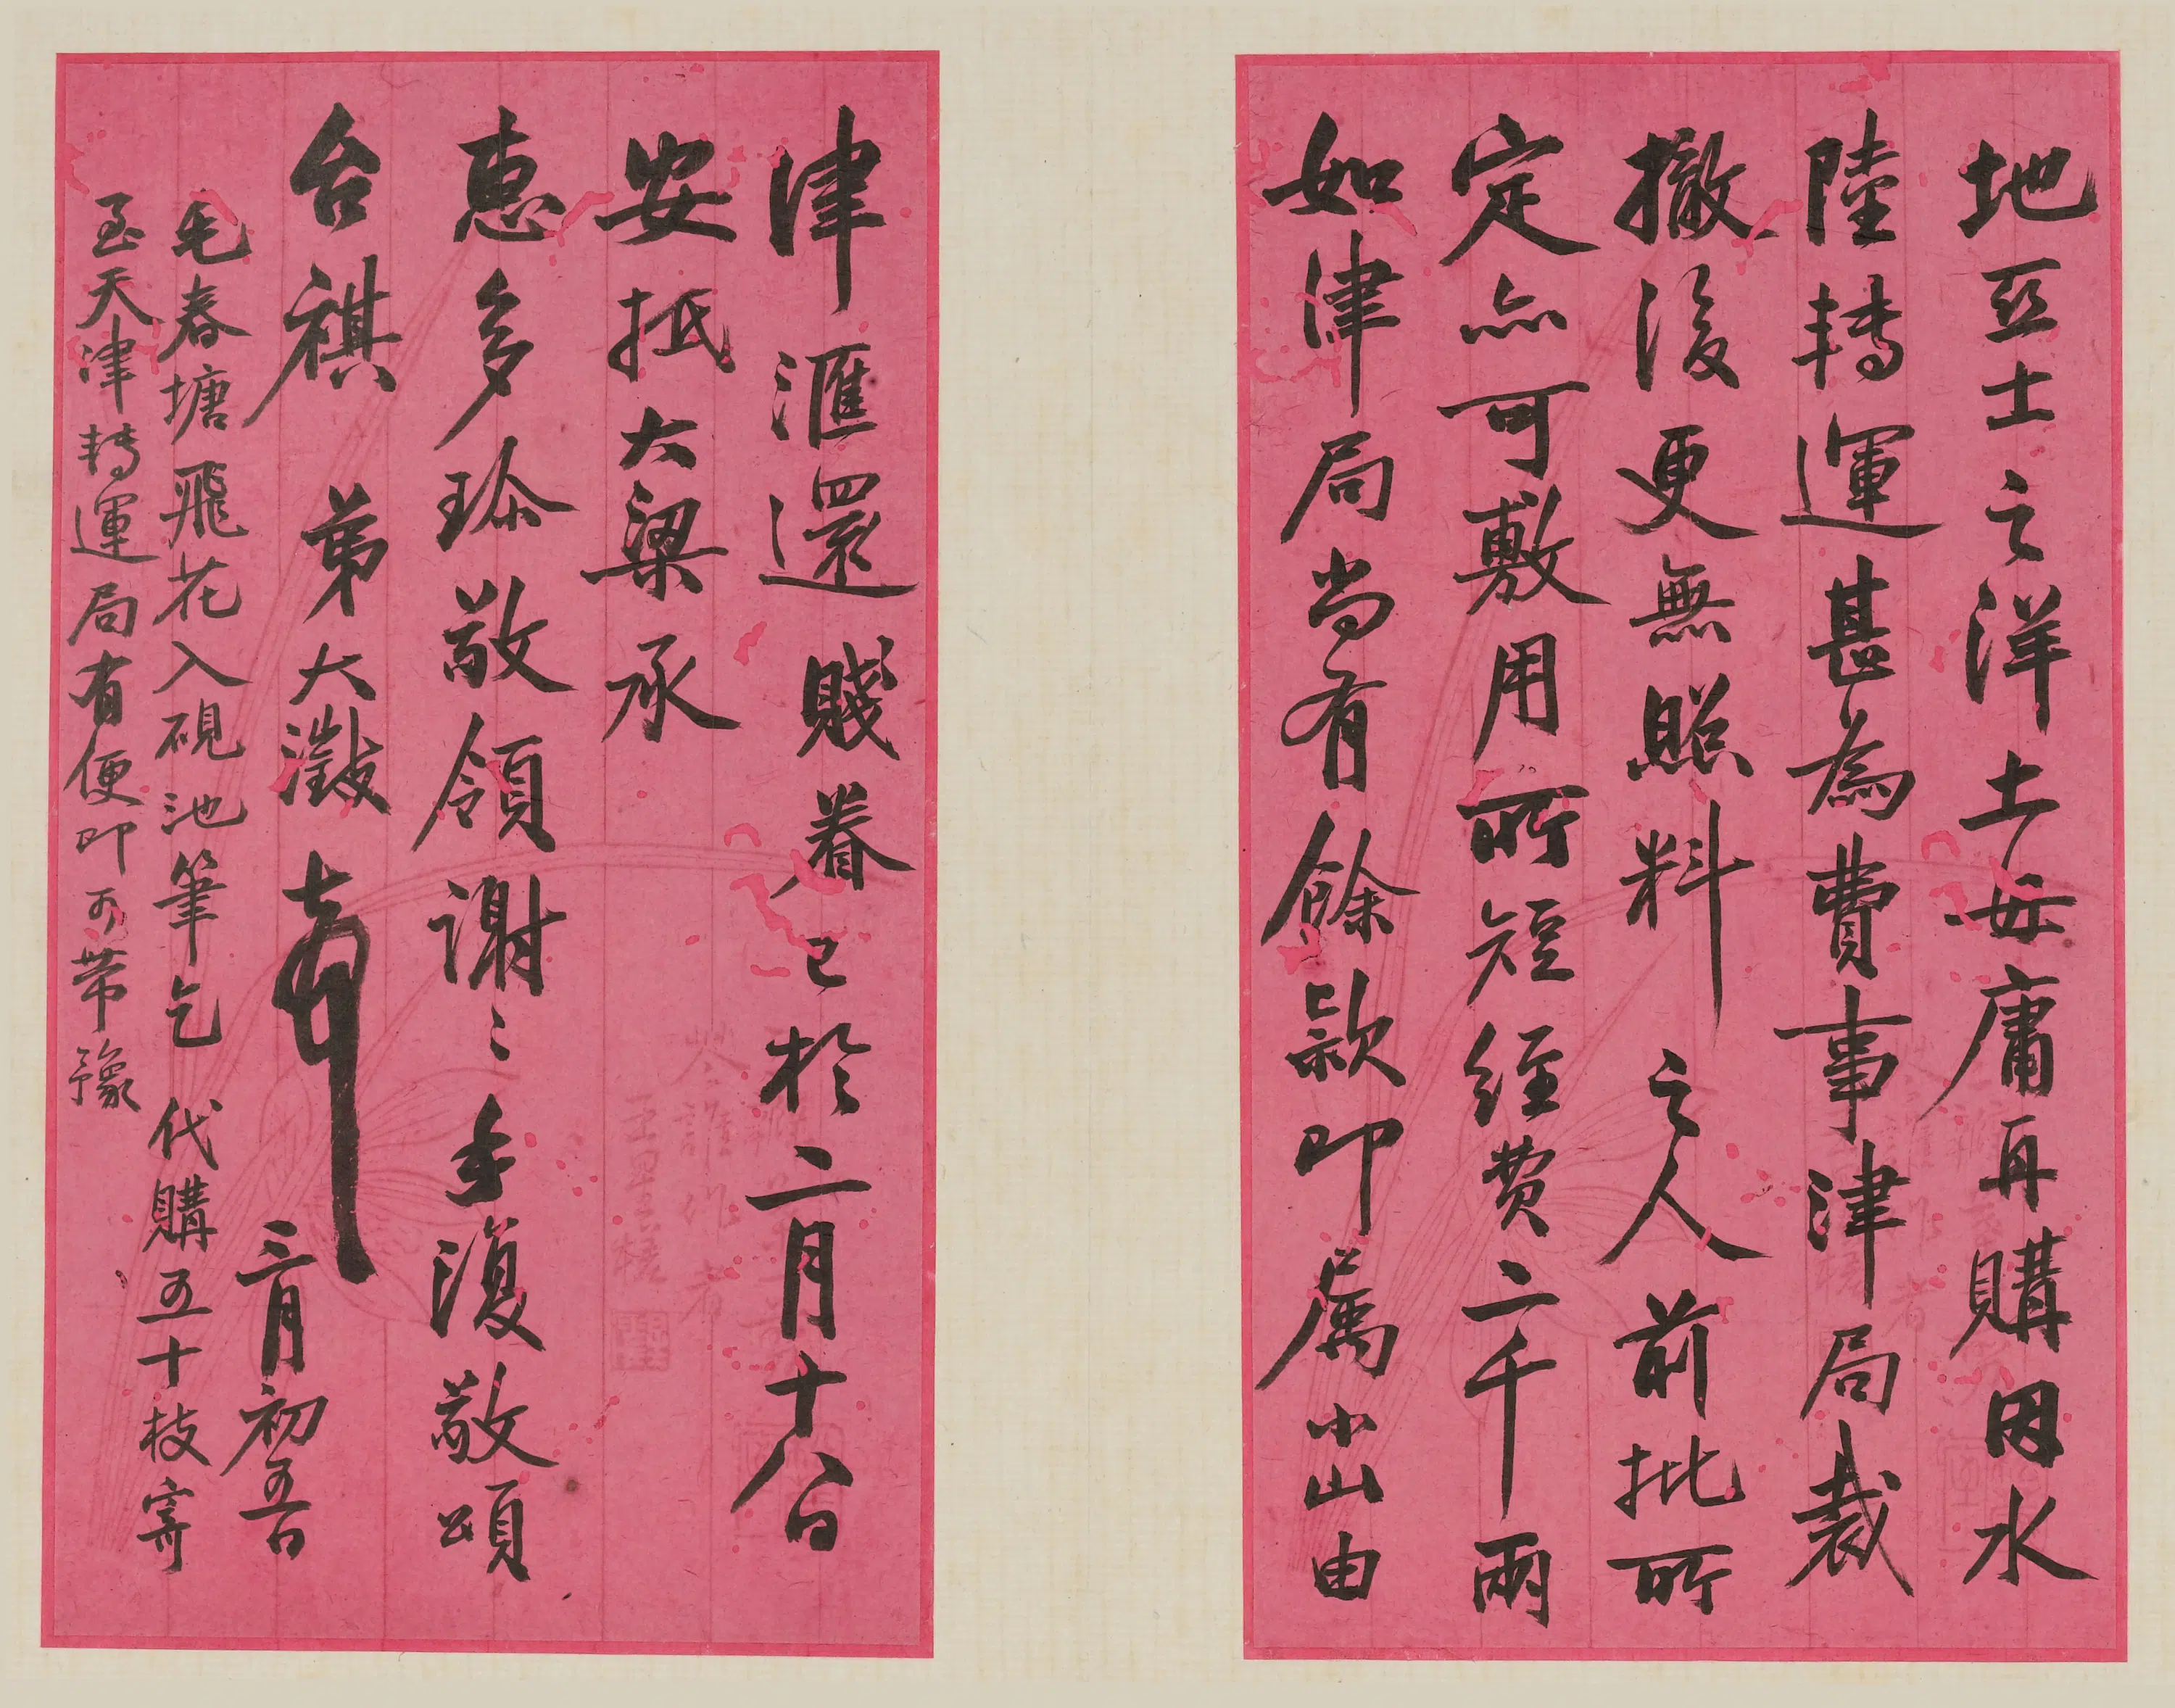 地亞士之洋土毋庸再購因水
陸轉運甚為費事津局裁
撤後更無照料之人前批所
定亦可敷用所短經費二千兩
如津局尚有餘款即屬小山由
津滙還賤眷已於二月十八日
安抵大梁承
惠多珍敬領謝〻手復敬頌
台祺 弟大澂頓首 三月初五日
毛春塘飛花入硯池筆乞代購五十枝寄
至天津轉運局有便即可帶豫